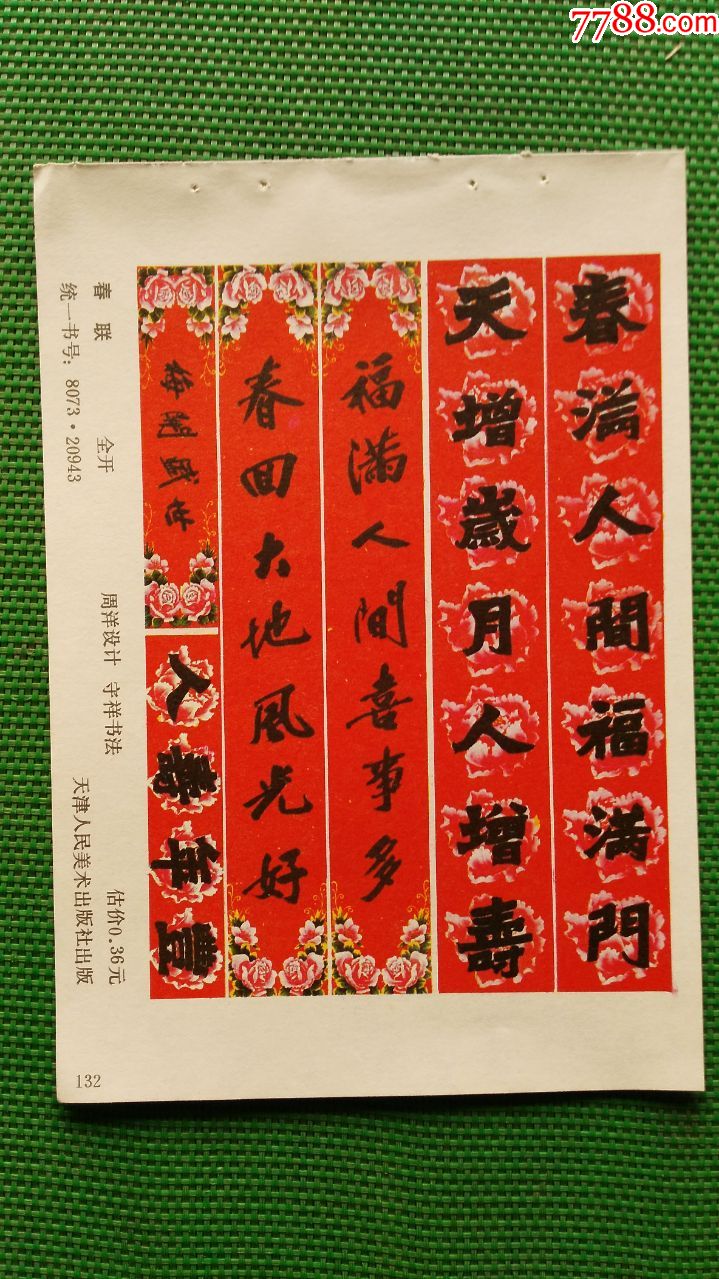 7788.com
春滿人間福滿門
天增歲月人增壽
福滿人間喜事多
春回大地風光好
人壽年豐
春联 全开 周洋设计 守祥书法 估价0.36元
统一书号：8073·20943 天津人民美术出版社出版
132